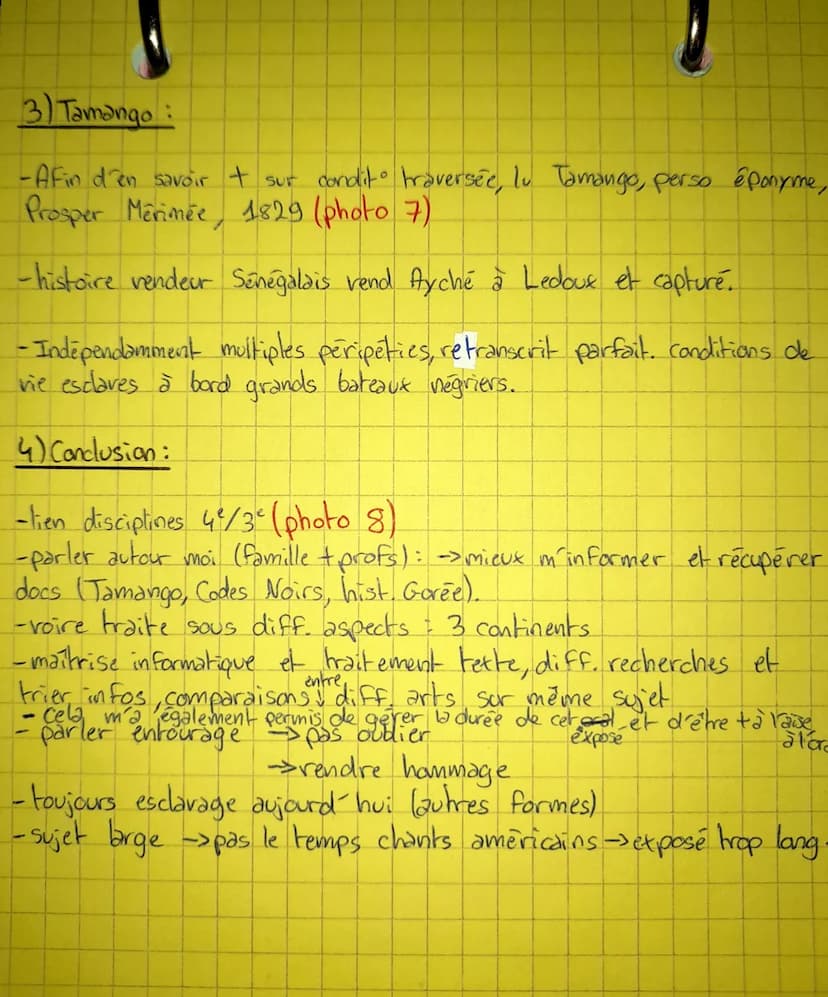 3) Tamango :
-Afin d'en savoir + sur condit° traversée, lu Tamango, perso éponyme,
Prosper Mérimée, 1829 (photo 7)
-histoire vendeur Sénégalais vend Ayché à Ledoux et capturé.
-Indépendamment multiples péripéties, retranscrit parfait. conditions de
vie esclaves à bord grands bateaux négriers.
4) Conclusion :
-lien disciplines 4e/3e (photo 8)
-parler autour moi (famille + profs) : ->mieux m'informer et récupérer
docs (Tamango, Codes Noirs, hist. Gorée).
-voire traite sous diff. aspects : 3 continents
-maîtrise informatique et traitement texte, diff. recherches et
trier infos, comparaisons entre diff. arts sur même sujet
- Cela m'a également permis de gérer la durée de cet exposé et d'être + à l'aise
à l'
- parler entourage -> pas oublier
->rendre hommage
-toujours esclavage aujourd'hui (autres formes)
-sujet large ->pas le temps chants américains ->exposé trop long.